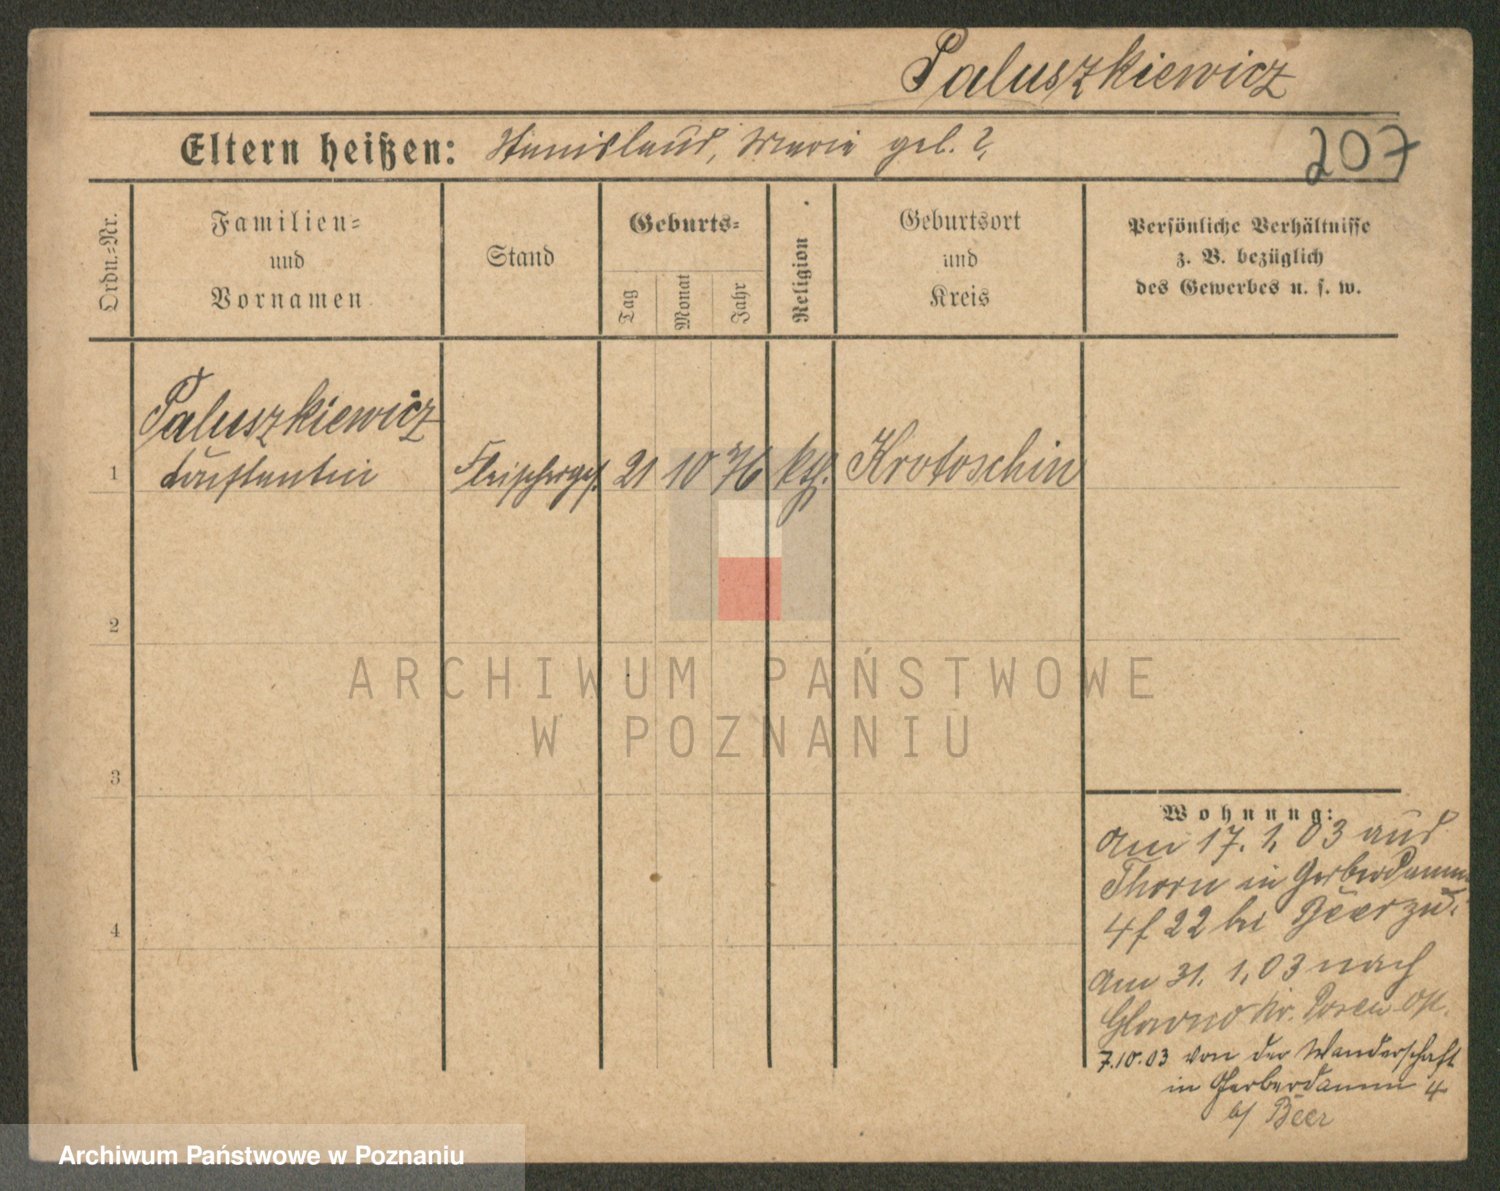 Paluszkiewicz
Eltern heißen: Stanislaus, Marie geb. ?
207
Ordn.-Nr.
Familien-
und
Vornamen
Stand
Geburts-
Tag
Monat
Jahr
Religion
Geburtsort
und
Kreis
Persönliche Verhältnisse
z. B. bezüglich
des Gewerbes u. s. w.
Paluszkiewicz
1 Constantin Fleischerges. 21 10 76 kth. Krotoschin
2
3
4
Wohnung:
Am 17. 1. 03 aus
Thorn in Gerberdamm
4 f 22 bei Beer zu.
Am 31. 1. 03 nach
Glowno Kr. Posen Ost.
7.10.03 von der Wanderschaft
in Gerberdamm 4
b/ Beer
ARCHIWUM PAŃSTWOWE
W POZNANIU
Archiwum Państwowe w Poznaniu